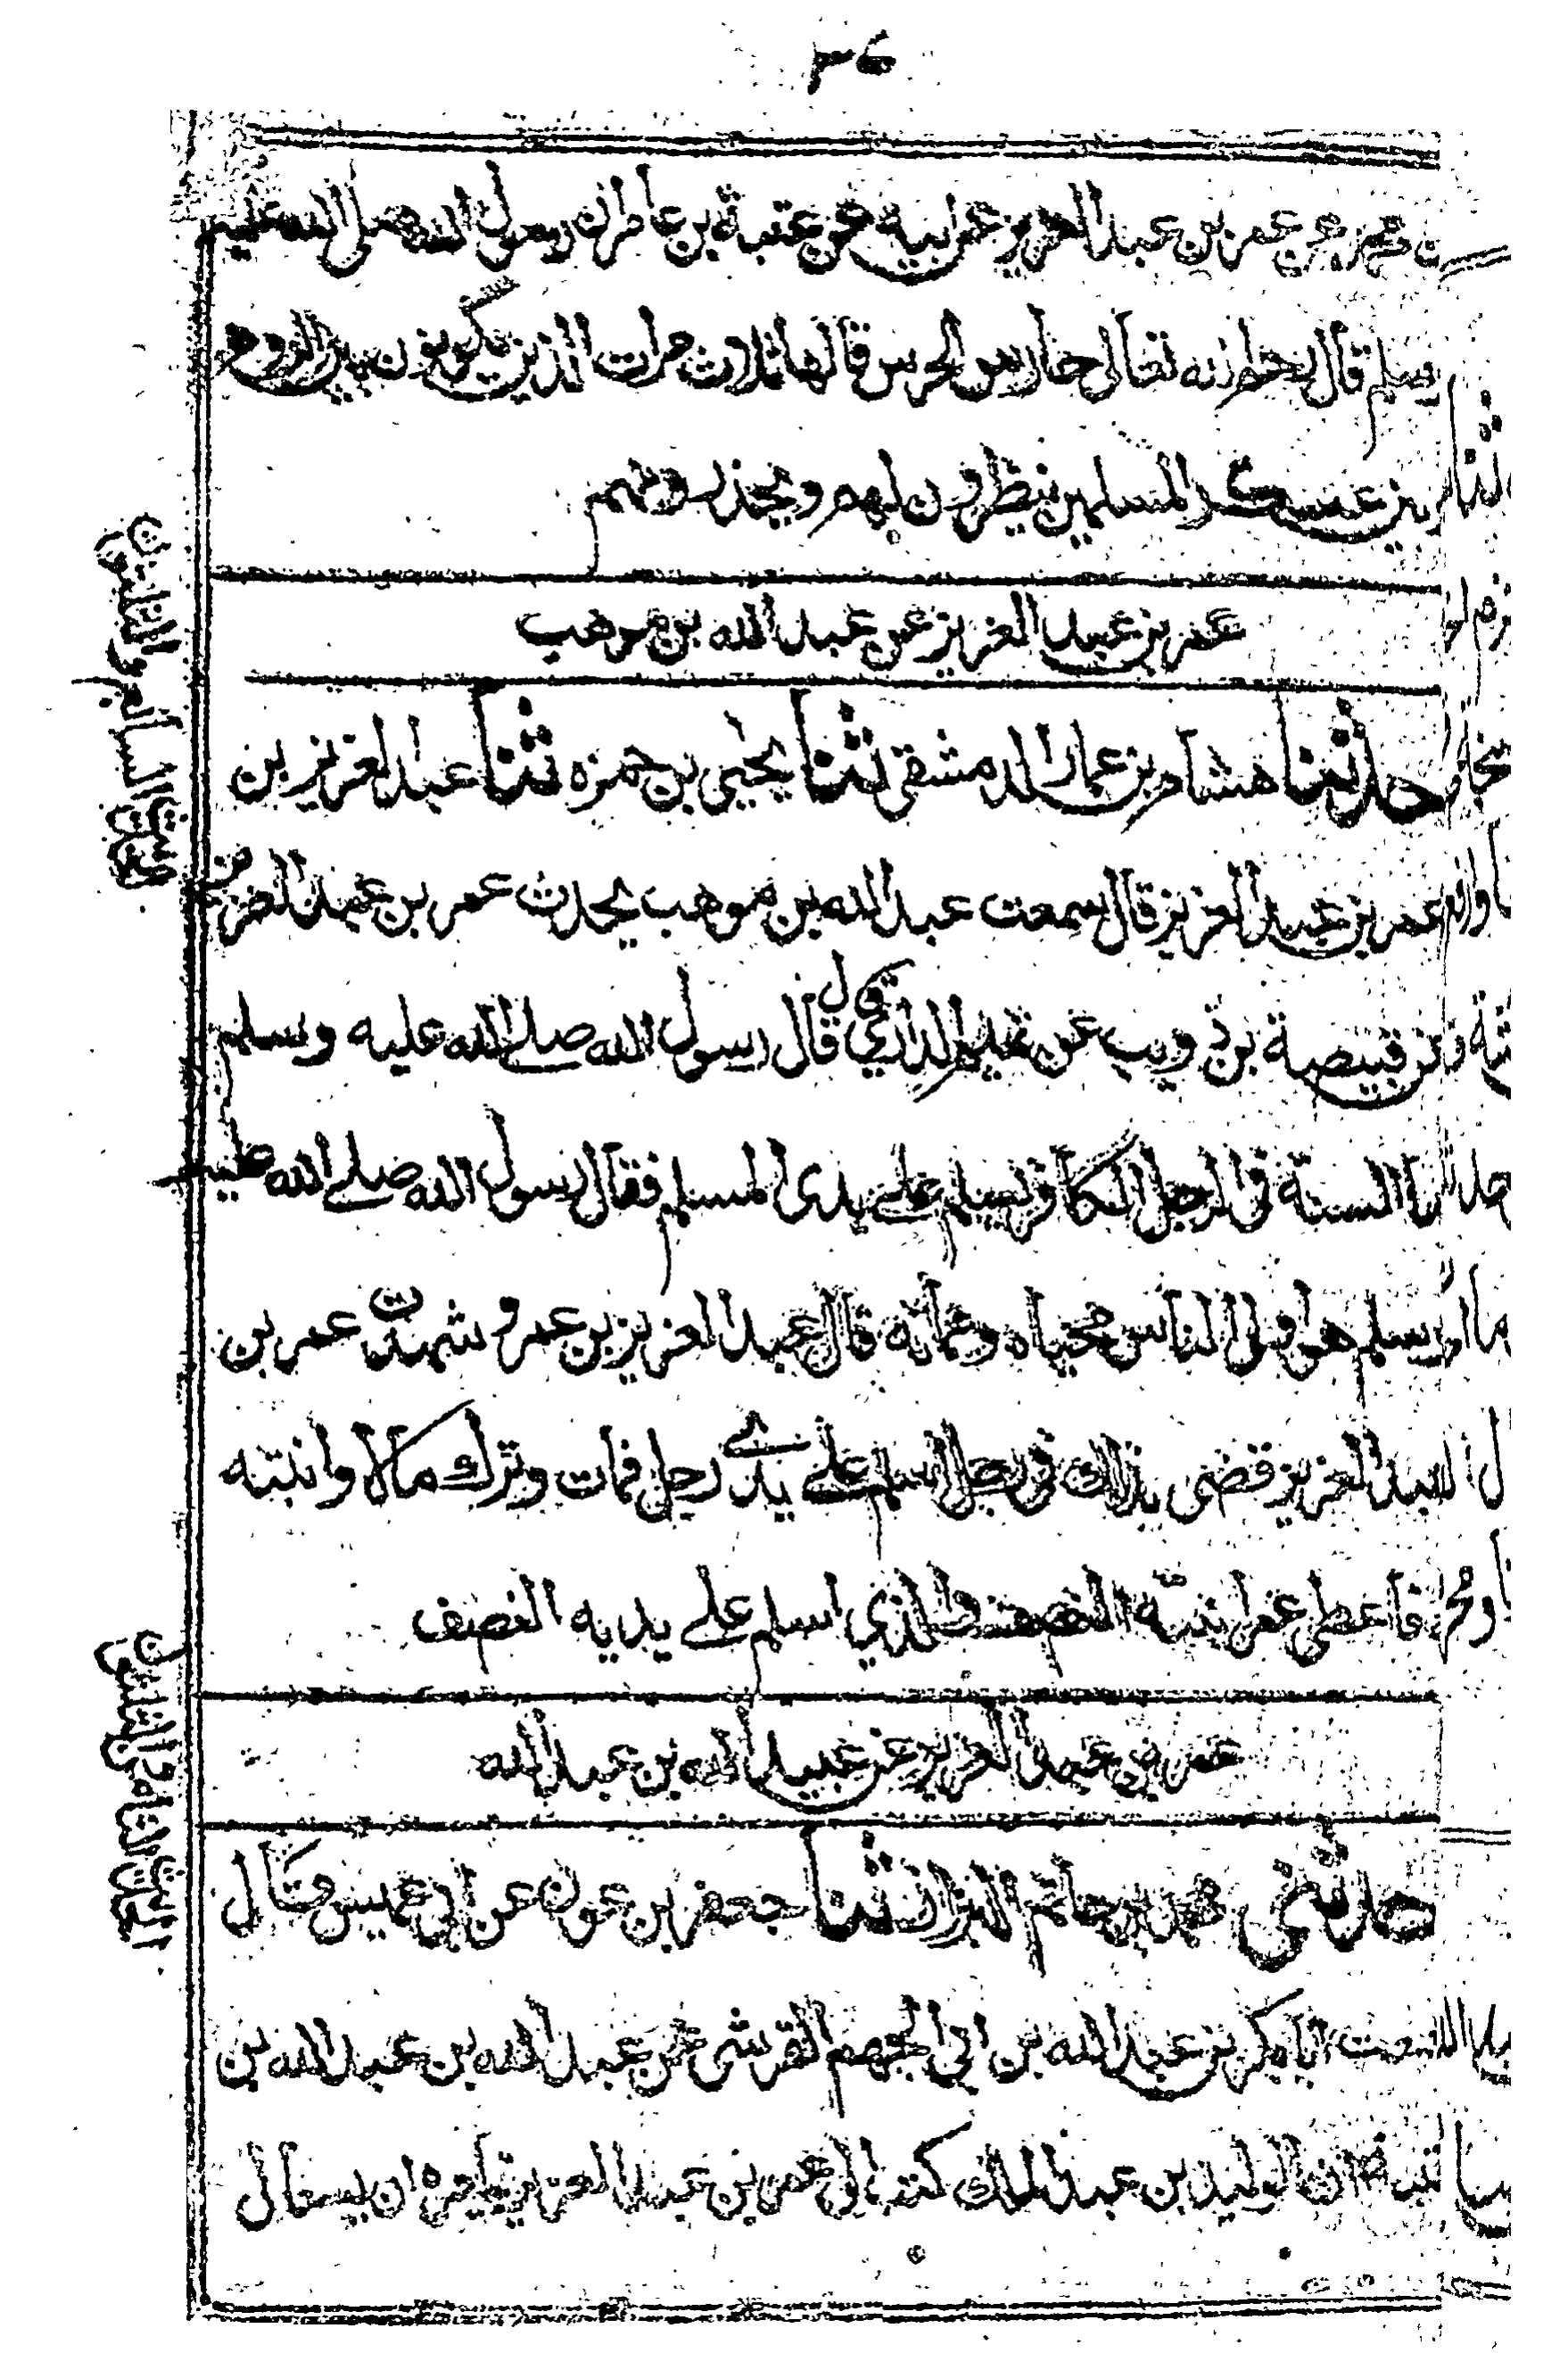 ٣٦
عن عمر بن عبد العزيز عن ابيه عن عقبة بن عامر ان رسول الله صلى الله عليه
وسلم قال رحم الله تعالى حارس الحرس قالها ثلاث مرات الذين يكونون بين الروم
وبين عسكر المسلمين ينظرون لهم ويحذرونهم
عمر بن عبد العزيز عن عبد الله بن موهب
حدثنا هشام بن عمار الدمشقي ثنا يحيى بن حمزه ثنا عبد العزيز بن
عمر بن عبد العزيز قال سمعت عبد الله بن موهب يحدث عمر بن عبد العزيز
عن قبيصة بن ذويب عن تميم الداري قال قال رسول الله صلى الله عليه وسلم
ما السنة في الرجل الكافر يسلم على يدى المسلم فقال رسول الله صلى الله عليه
وسلم هو اولى الناس محياه ومماته قال عبد العزيز بن عمر وشهدت عمر بن
عبد العزيز قضى بذلك في رجل اسلم على يدي رجل فمات وترك مالا وابنته
فاعطى عمر ابنته النصف والذي اسلم على يديه النصف
عمر بن عبد العزيز عن عبيد الله بن عبد الله
حدثني محمد بن حاتم البزاز ثنا جعفر بن عون عن ابي عميس قال
سمعت ابا بكر بن عبد الله بن ابي الجهم القرشى عن عبيد الله بن عبد الله بن
عتبة ان الوليد بن عبد الملك كتب الى عمر بن عبد العزيز يامره ان يسال
الحديث السابع والثلاثون
الحديث الثامن والثلاثون